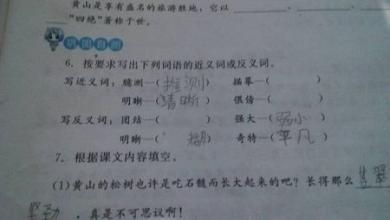 黄山是享有盛名的旅游胜地，它以
“四绝”著称于世。
巩固自测
6. 按要求写出下列词语的近义词或反义词。
写近义词：臆测—（推测） 描摹—（ ）
明晰—（清晰） 偎傍—（ ）
写反义词：团结—（ ） 强大—（弱小）
明晰—（ 糊） 奇特—（平凡）
7. 根据课文内容填空。
（1）黄山的松树也许是吃石髓而长大起来的吧？长得那么
坚劲，真是不可思议啊！